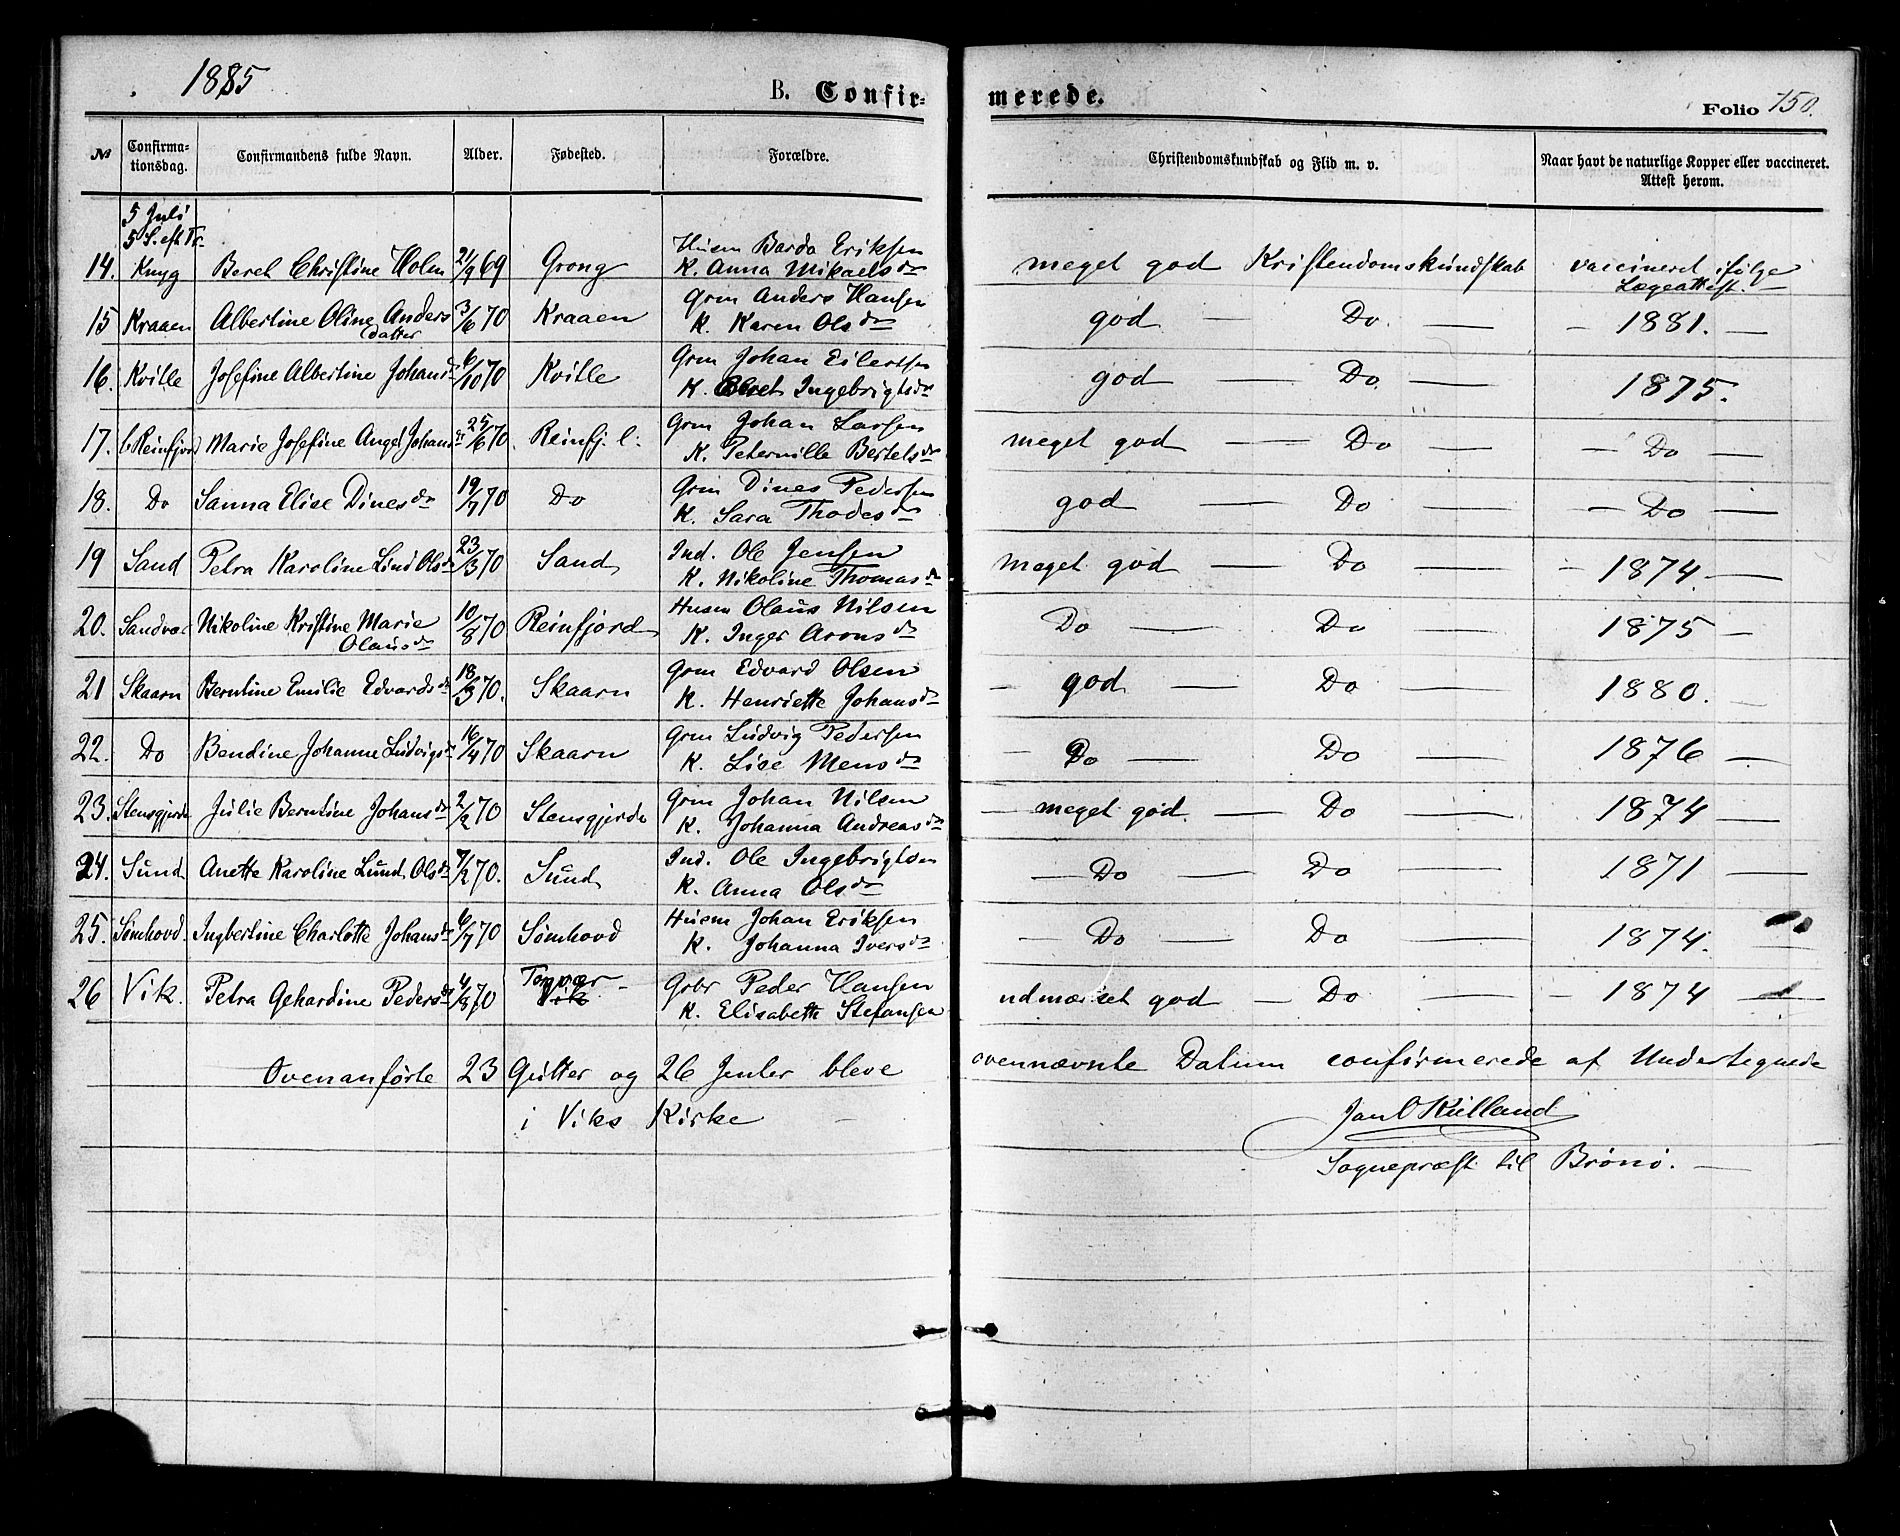 1885
B. Confir-
merede.
Folio 150.
№
Confirma-
tionsdag.
Confirmandens fulde Navn.
Alder.
Fødested.
Forældre.
Christendomskundskab og Flid m. v.
Naar havt de naturlige Kopper eller vaccineret.
Attest herom.
5 Juli
5 S. eft Tr.
14. Knyg Beret Christine Holm 21/9 69 Grong Husm Bardo Eriksen
K. Anna Mikaelsdr
meget god Kristendomskundskab vaccineret ifølge
Lægeattest. —
15 Kraaen Albertine Oline Anders 3/6 70 Kraaen Grm Anders Hansen
datter K. Karen Olsdr
god — Do — - 1881. —
16. Kville Josefine Albertine Johansdr 6/10 70 Kville Grm Johan Eilertsen
K. Beret Ingebrigtsdr
god — Do — 1875.
17. Reinfjord Marie Josefine Angel Johansdr 25/6 70 Reinfj. l. Grm Johan Larsen
K. Peternille Bertelsdr
meget god — Do — - Do —
18. Do Sanna Elise Dinesdr 19/7 70 Do Grm Dines Pedersen
K. Sara Thodesdr
god — Do — - Do —
19 Sand Petra Karoline Lind Olsdr 23/3 70 Sand Ind. Ole Jensen
K. Nikoline Thomasdr
Meget god — Do — - 1874. —
20. Sandvær Nikoline Kristine Marie 10/8 70 Reinfjord Husm Olaus Nilsen
Olausdr K. Inger Aronsdr
Do — Do — 1875 —
21 Skaarn Berntine Emilie Edvardsdr 18/3 70. Skaarn Grm Edvard Olsen
K. Henriette Johansdr
- god — Do — 1880. —
22. Do Bendine Johanne Ludvigsdr 16/4 70 Skaarn Grm Ludvig Pedersen
K. Lise Mensdr
- Do — Do — 1876 —
23. Stensgjerde Julie Berntine Johansdr 2/2 70 Stensgjerde Grm Johan Nilsen
K. Johanna Andreasdr
- meget god. — Do — 1874 —
24. Sund Anette Karoline Lund Olsdr 7/2 70. Sund Ind. Ole Ingebrigtsen
K. Anna Olsdr
- Do — Do — 1871 —
25. Sømhovd. Ingbertine Charlotte Johansdr 6/7 70 Sømhovd Husm Johan Eriksen
K. Johanna Iversdr
- Do — Do — 1874. —
26 Vik. Petra Gehardine Pedersdr 4/8 70 Torgvær Grbr Peder Hansen
Vik K. Elisabeth Stefansen
udmærket god — Do — - 1874 —
Ovenanførte 23 Gutter og 26 Jenter bleve ovennævnte Datum confirmerede af Undertegnede
i Viks Kirke —
Jan O Kielland
Sognepræst til Brønø. —